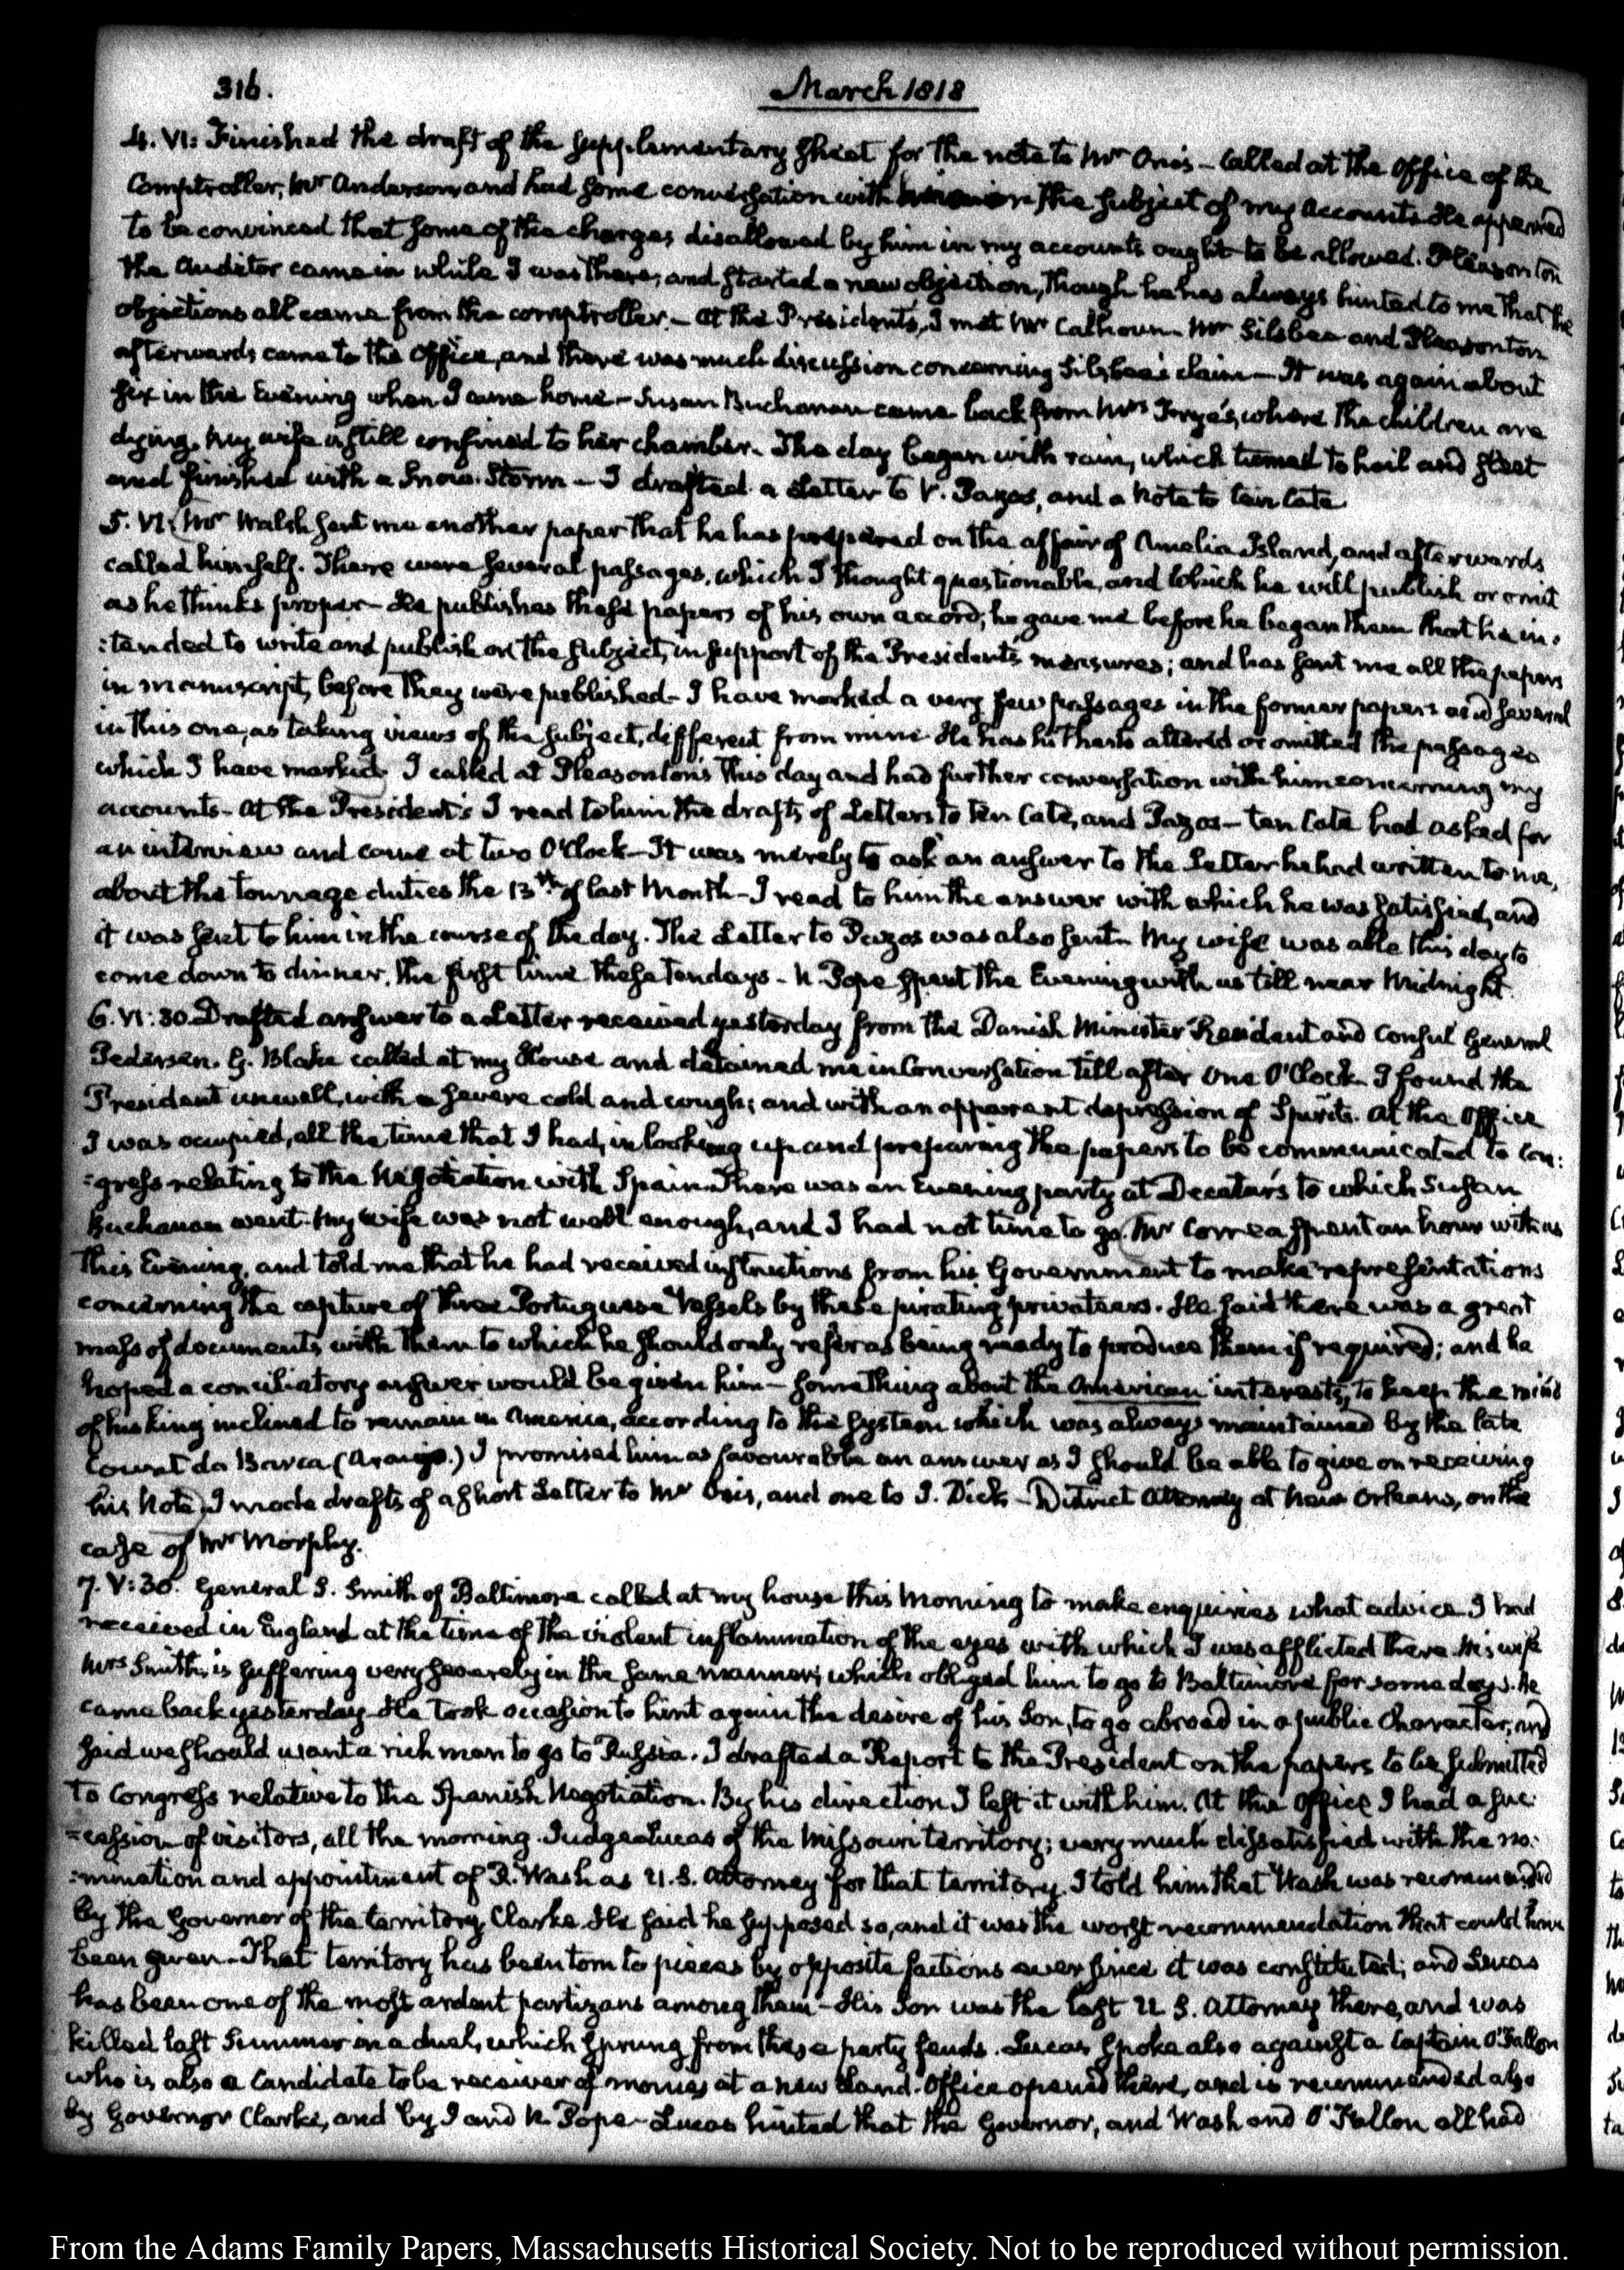 316.
March 1818
4. VI: Finished the draft of the supplementary sheet for the note to Mr Onis – Called at the Office of the
Comptroller, Mr Anderson, and had some conversation with him on the subject of my accounts. He appeared
to be convinced that some of the charges disallowed by him in my accounts ought to be allowed. Pleasonton
the Auditor came in while I was there, and started a new objection, though he has always hinted to me that the
objections all came from the comptroller. – At the President's, I met Mr Calhoun. Mr Silsbee and Pleasonton
afterwards came to the Office, and there was much discussion concerning Silsbee's claim – It was again about
six in the Evening when I came home – Susan Buchanan came back from Mrs Frye's, where the children are
dying. My wife is still confined to her chamber. The day began with rain, which turned to hail and sleet
and finished with a Snow-Storm – I drafted a Letter to V. Pazos, and a Note to ten Cate
5. VI: Mr Walsh sent me another paper that he has prepared on the affair of Amelia Island, and afterwards
called himself. There were several passages, which I thought questionable, and which he will publish or omit
as he thinks proper – He publishes these papers of his own accord; he gave me before he began them that he in-
:tended to write and publish on the subject, in support of the President's measures; and has sent me all the papers
in manuscript, before they were published – I have marked a very few passages in the former papers and several
in this one, as taking views of the subject, different from mine. He has hitherto altered or omitted the passages
which I have marked. I called at Pleasonton's this day and had further conversation with him concerning my
accounts – At the President's I read to him the drafts of Letters to ten Cate, and Pazos – ten Cate had asked for
an interview and came at two O'Clock – It was merely to ask an answer to the Letter he had written to me,
about the tonnage duties the 13th of last Month – I read to him the answer with which he was satisfied, and
it was sent to him in the course of the day. The Letter to Pazos was also sent. My wife was able this day to
come down to dinner, the first time these ten days – N. Pope spent the Evening with us till near Midnight.
6. VI: 30. Drafted answer to a Letter received yesterday from the Danish Minister Resident and Consul General
Pedersen. G. Blake called at my House and detained me in Conversation till after One O'Clock. I found the
President unwell, with a severe cold and cough; and with an apparent depression of Spirits. At the Office
I was occupied, all the time that I had, in looking up and preparing the papers to be communicated to Con:
:gress relating to the Negotiation with Spain. There was an Evening party at Decatur's to which Susan
Buchanan went. My wife was not well enough, and I had not time to go. Mr Correa spent an hour with us
this Evening, and told me that he had received instructions from his Government to make representations
concerning the capture of three Portuguese Vessels by these pirating privateers. He said there was a great
mass of documents with them to which he should only refer as being ready to produce them if required; and he
hoped a conciliatory answer would be given him – something about the American interests, to keep the mind
of his king inclined to remain in America, according to the system which was always maintained by the late
Count da Barca (Araujo.) I promised him as favourable an answer as I should be able to give on receiving
his Note. I made drafts of a short Letter to Mr Onis, and one to J. Dick – District Attorney at New Orleans, on the
case of Mr Morphy.
7. V: 30. General S. Smith of Baltimore called at my house this Morning to make enquiries what advice I had
received in England at the time of the violent inflammation of the eyes with which I was afflicted there. His wife
Mrs Smith, is suffering very severely in the same manner; which obliged him to go to Baltimore for some days. He
came back yesterday. He took occasion to hint again the desire of his Son, to go abroad in a public Character, and
said we should want a rich man to go to Russia. I drafted a Report to the President on the papers to be submitted
to Congress relative to the Spanish Negotiation. By his direction I left it with him. At the Office I had a suc:
:cession of visitors, all the morning. Judge Lucas of the Missouri territory; very much dissatisfied with the no:
:mination and appointment of R. Wash as U.S. Attorney for that territory. I told him that Wash was recommended
by the Governor of the territory, Clarke. He said he supposed so, and it was the worst recommendation that could have
been given – That territory has been torn to pieces by opposite factions ever since it was constituted; and Lucas
has been one of the most ardent partizans among them – His Son was the last U.S. Attorney there, and was
killed last Summer in a duel, which sprung from these party feuds. Lucas spoke also against a Captain O'Fallon
who is also a Candidate to be receiver of monies at a new Land-Office opened there, and is recommended also
by Governor Clarke, and by J and N. Pope – Lucas hinted that the Governor, and Wash and O'Fallon all had
From the Adams Family Papers, Massachusetts Historical Society. Not to be reproduced without permission.